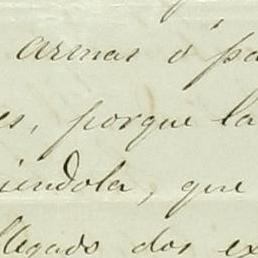 armas ó pa
es, porque la
iendola, que
llegado dos ex